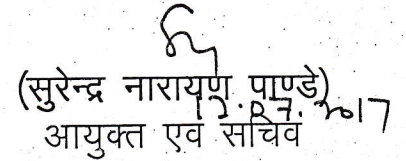 (सुरेन्द्र नारायण पाण्डे)
12.07.2017
आयुक्त एवं सचिव